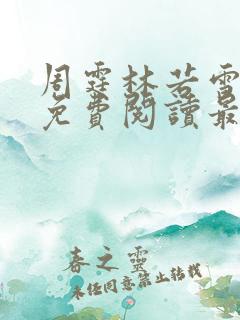 周霆林若雪
免費閱讀最
春之靈
未经同意禁止转载